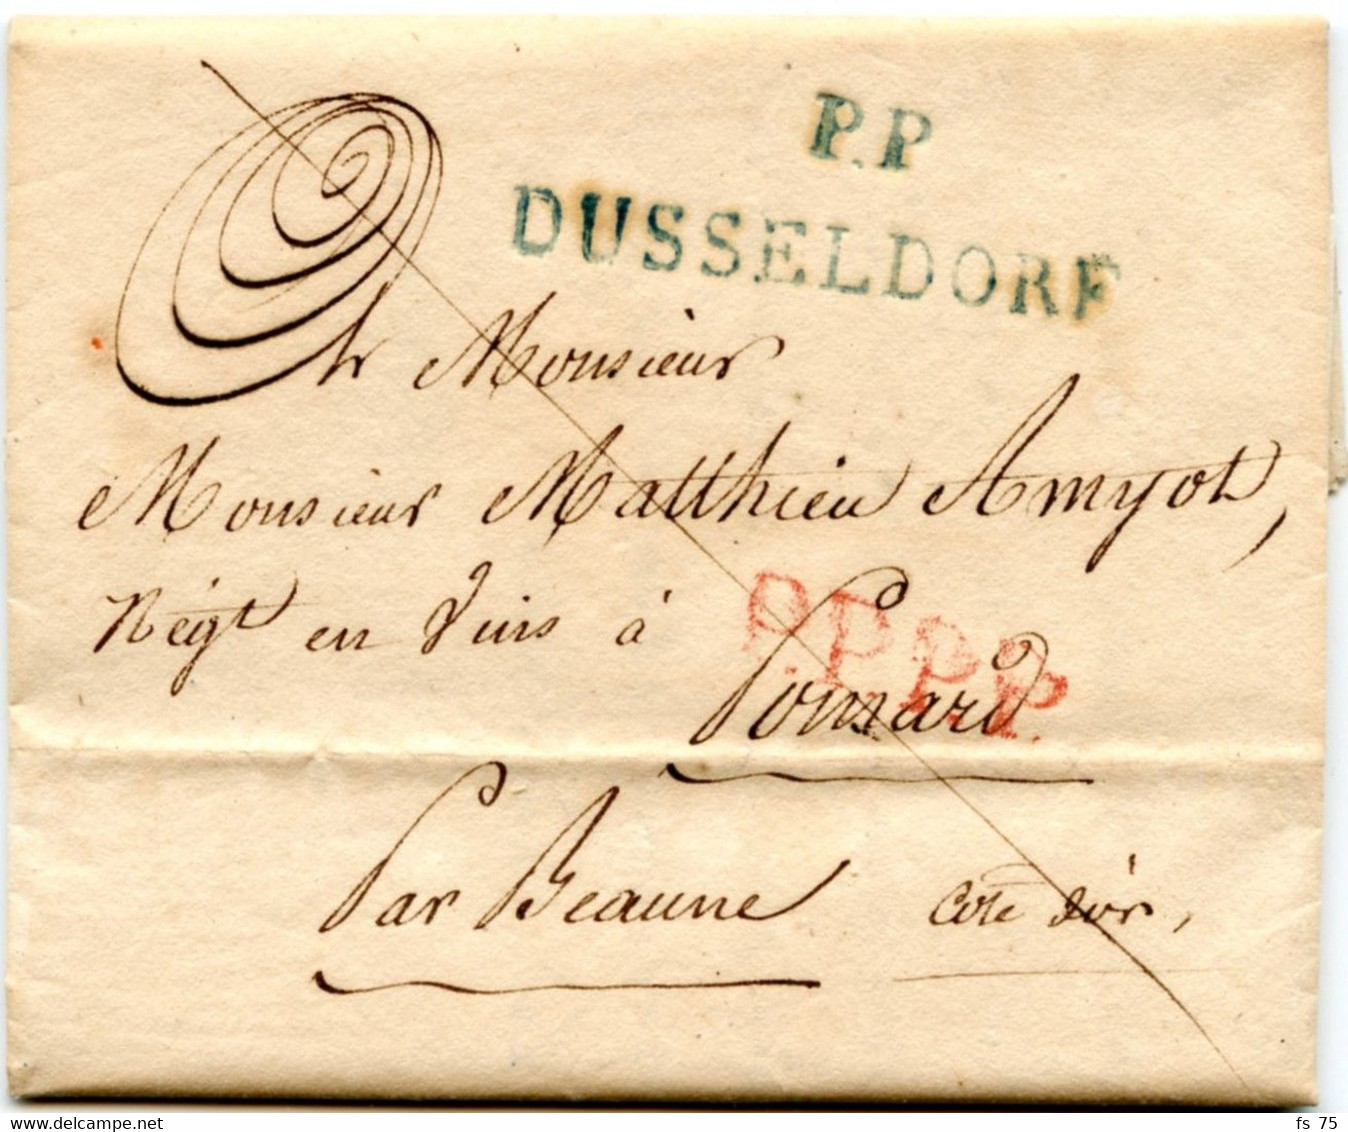 P.P
DUSSELDORF
A Monsieur
Monsieur Matthieu Amyot,
Négt en Vins à
P.P.P.P.
Pomard
Par Beaune Cote d'or,
fs 75